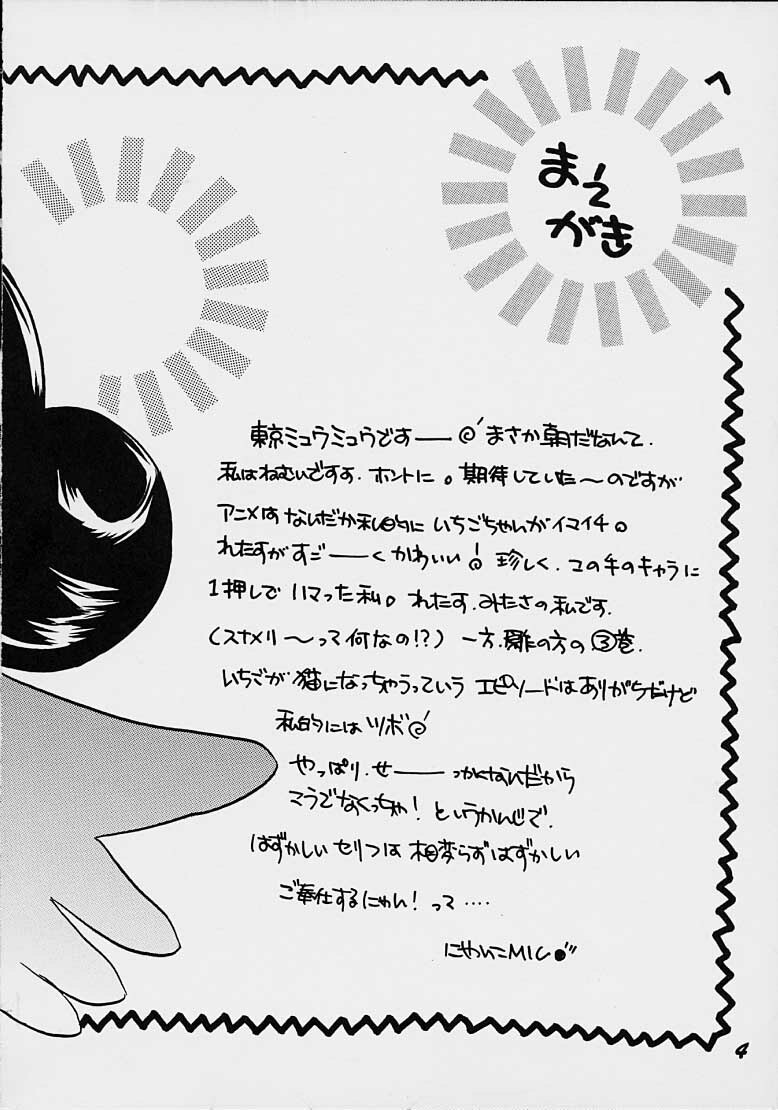 まえ
がき
東京ミュウミュウですーー まさか朝だなんて.
私はねむいですよ.ホントに。期待していた〜のですが
アニメは なんだか私的に いちごちゃんがイマイチ。
れたすがすごーーく かわいい! 珍しく.この手のキャラに
1押しで ハマった私。れたす.みたさの私です.
(スナメリ〜って何なの!?) 一方.雑の方の③巻.
いちごが 猫になっちゃうっていう エピソードはありがちだけど
私的には ツボ
やっぱり.せーーっかくなんだから
マうでなくっちゃ! というかんじで.
はずかしい セリフは 相変らずはずかしい
ご奉仕するにゃん! って‥‥
にゃいこMIC
4